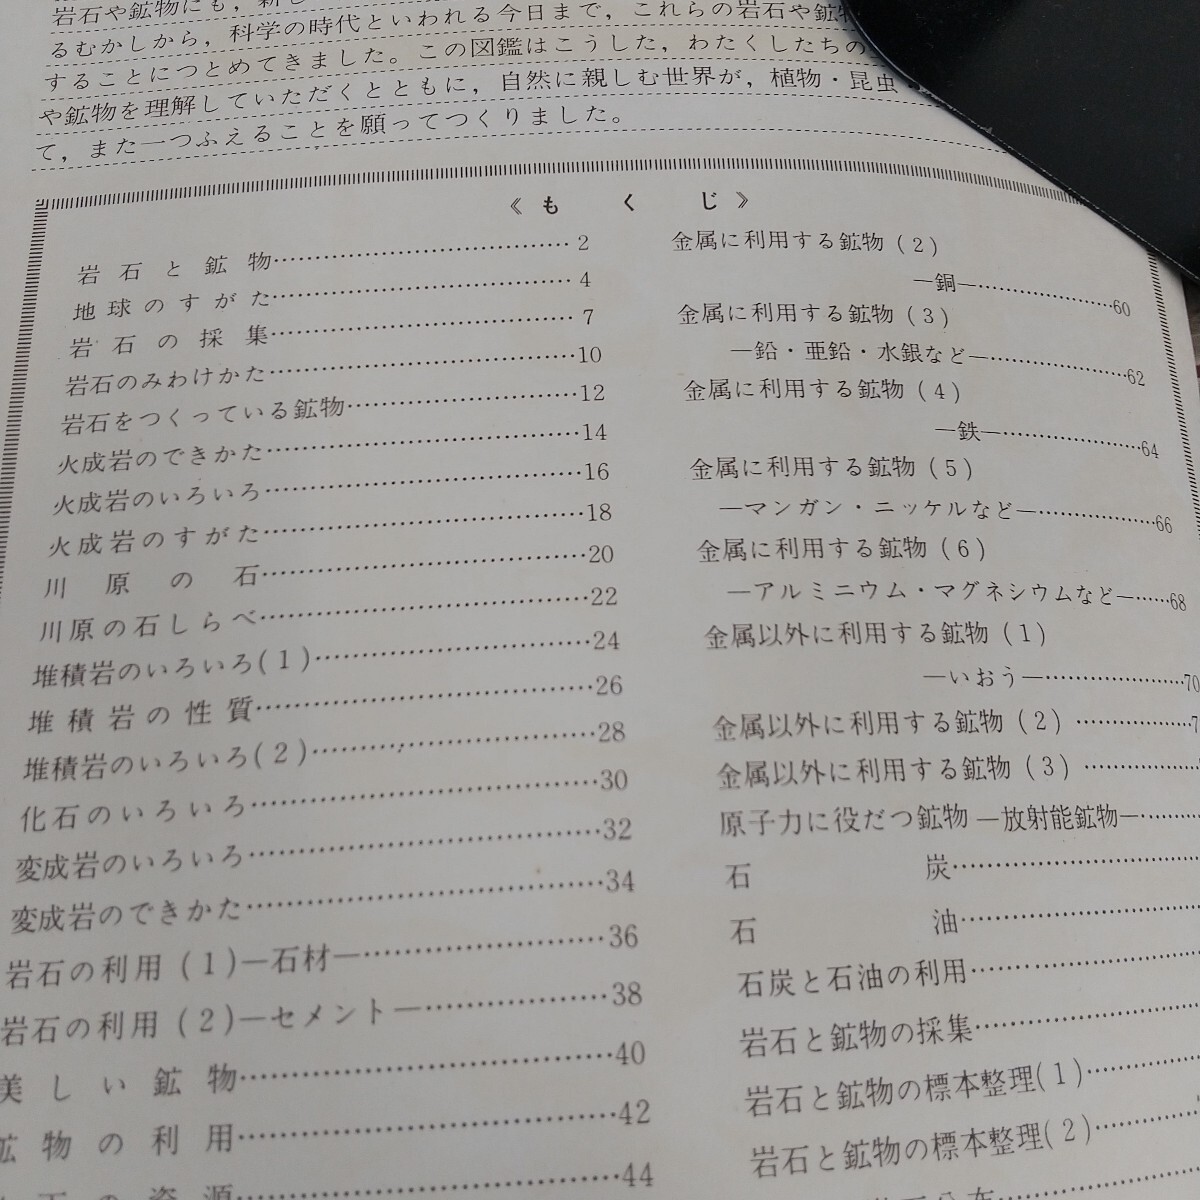 岩石や鉱物にも，新し
るむかしから，科学の時代といわれる今日まで，これらの岩石や鉱物
することにつとめてきました。この図鑑はこうした，わたくしたちの
や鉱物を理解していただくとともに，自然に親しむ世界が，植物・昆虫
て，また一つふえることを願ってつくりました。
《もくじ》
岩石と鉱物……2
地球のすがた……4
岩石の採集……7
岩石のみわけかた……10
岩石をつくっている鉱物……12
火成岩のできかた……14
火成岩のいろいろ……16
火成岩のすがた……18
川原の石……20
川原の石しらべ……22
堆積岩のいろいろ(1)……24
堆積岩の性質……26
堆積岩のいろいろ(2)……28
化石のいろいろ……30
変成岩のいろいろ……32
変成岩のできかた……34
岩石の利用(1)―石材―……36
岩石の利用(2)―セメント―……38
美しい鉱物……40
鉱物の利用……42
の資源……44
金属に利用する鉱物(2)
―銅―……60
金属に利用する鉱物(3)
―鉛・亜鉛・水銀など―……62
金属に利用する鉱物(4)
―鉄―……64
金属に利用する鉱物(5)
―マンガン・ニッケルなど―……66
金属に利用する鉱物(6)
―アルミニウム・マグネシウムなど―……68
金属以外に利用する鉱物(1)
―いおう―……70
金属以外に利用する鉱物(2)……7
金属以外に利用する鉱物(3)……
原子力に役だつ鉱物―放射能鉱物―……
石炭……
石油……
石炭と石油の利用……
岩石と鉱物の採集……
岩石と鉱物の標本整理(1)……
岩石と鉱物の標本整理(2)……